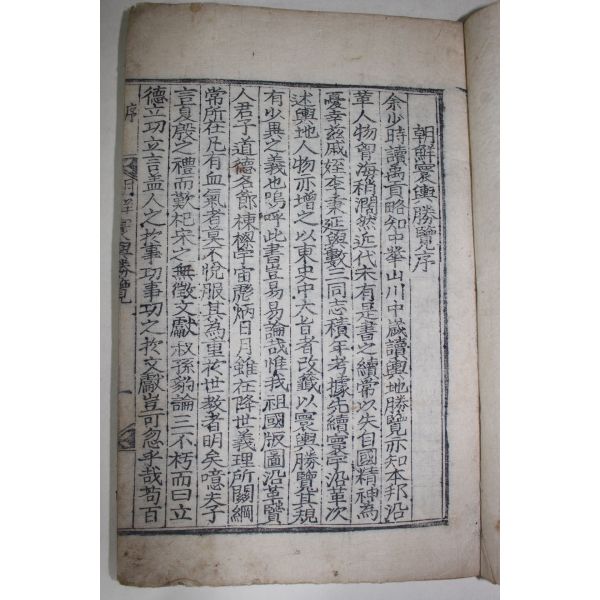 朝鮮寰輿勝覽序
余少時讀禹貢略知中華山川中歲讀輿地勝覽亦知本邦沿
革人物曾海稍濶然近代未有是書之續常以失自國精神為
憂幸玆戚姪李秉延與數三同志積年考據先續寰宇沿革次
述輿地人物亦增之以東史中大旨者改籤以寰輿勝覽其規
有少異之義也嗚呼此書豈易易論哉惟我祖國版圖沿革賢
人君子道德名節棟樑宇宙彪炳日月雖在降世義理所關綱
常所在凡有血氣者莫不悅服其為重於世敎者明矣噫夫子
言夏殷之禮而歎杞宋之無徵文獻叔孫豹論三不朽而曰立
德立功立言盖人之於事功事功之於文獻豈可忽乎哉苟百
序
朝鮮寰輿勝覽
一